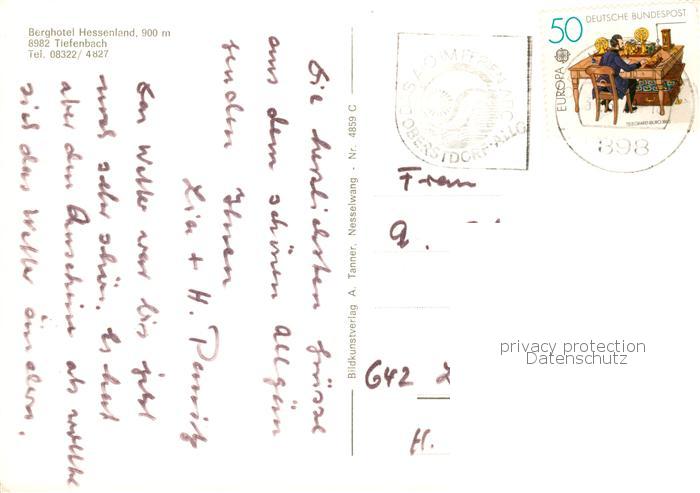 Berghotel Hessenland, 900 m
8982 Tiefenbach
Tel. 08322/ 4827
Die herzlichsten Grüsse
aus dem schönen Allgäu
senden Ihnen
Lia + H.
Das Wetter war bis jetzt
noch sehr schön. Es hat
aber den Anschein als wollte
sich das Wetter ändern.
Bildkunstverlag A. Tanner, Nesselwang - Nr. 4859 C
OBERSTDORF-ALLG
50 DEUTSCHE BUNDESPOST
EUROPA
898
Frau
642
H.
privacy protection
Datenschutz